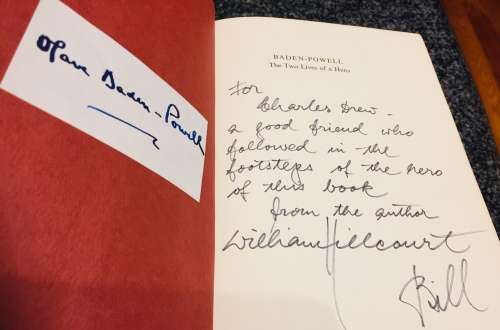 Olave Baden-Powell
BADEN-POWELL
The Two Lives of a Hero
For
Charles Drew -
a good friend who
followed in the
footsteps of the hero
of this book
from the author
William Hillcourt
Bill